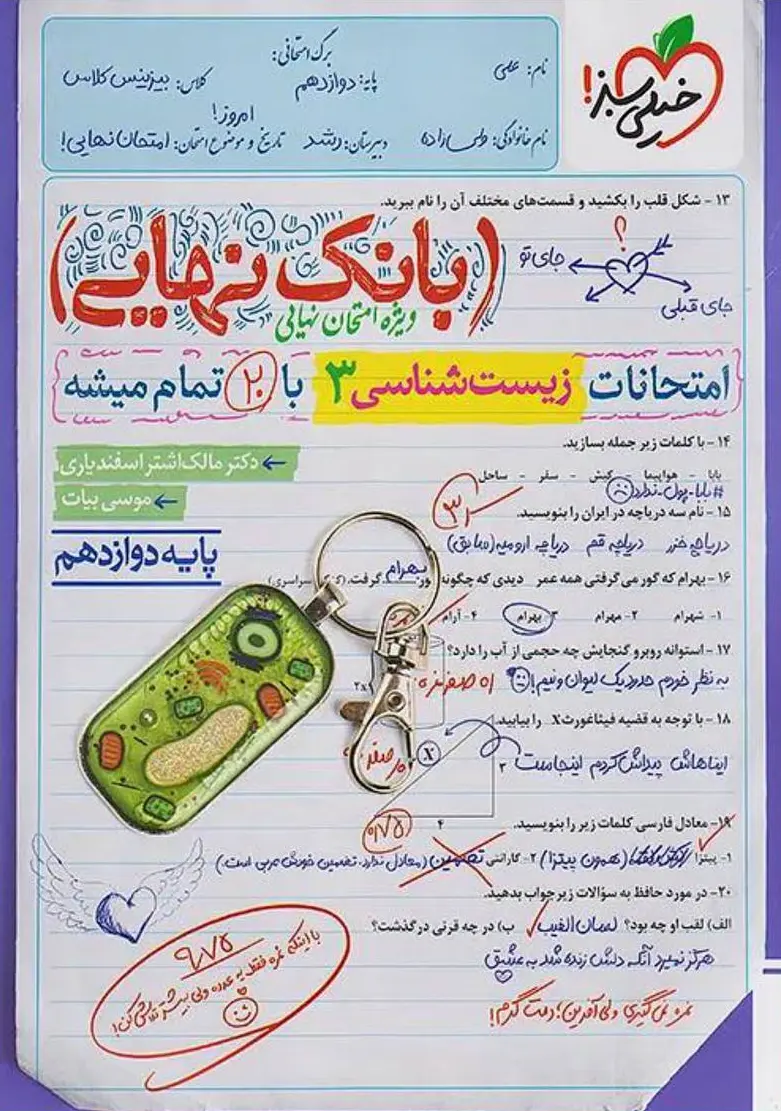 خیلی سبز!
برگ امتحانی:
نام: علی
پایه: دوازدهم
کلاس: بیزینس کلاس
نام خانوادگی: ولی زاده
دبیرستان: رشد
تاریخ و موضوع امتحان: امروز! امتحان نهایی!
۱۳ - شکل قلب را بکشید و قسمت‌های مختلف آن را نام ببرید.
؟
جای تو
جای قبلی
(بانک نهایی)
ویژه امتحان نهایی
امتحانات زیست‌شناسی ۳ با ۲۰ تمام میشه
۱۴ - با کلمات زیر جمله بسازید.
بابا - هواپیما - کیش - سفر - ساحل
#بابا-پول-ندارد
دکتر مالک‌اشتر اسفندیاری
موسی بیات
پایه دوازدهم
۱۵ - نام سه دریاچه در ایران را بنویسید.
دریاچه خزر دریاچه قم دریاچه ارومیه (سابق)
۱۶ - بهرام که گور می‌گرفتی همه عمر دیدی که چگونه گور بهرام گرفت. سراسری)
۱- شهرام ۲- مهرام ۳- بهرام ۴- آرام
۱۷ - استوانه روبرو گنجایش چه حجمی از آب را دارد؟
به نظر خودم حدود یک لیوان و نیم!
۲x
۱۸ - با توجه به قضیه فیثاغورث X را بیابید.
ایناهاش پیداش کردم اینجاست
X
۳
۴
صفر
۰/۷۵
۱۹- معادل فارسی کلمات زیر را بنویسید.
۱- پیتزا (همون پیتزا) ۲- گارانتی تضمین (معادل ندارد. تضمین خودش عربی است.)
۲۰- در مورد حافظ به سؤالات زیر جواب بدهید.
الف) لقب او چه بود؟ لسان الغیب ب) در چه قرنی درگذشت؟
هرگز نمیرد آنکه دلش زنده شد به عشق
نمره نمی‌گیری ولی آفرین؛ دمت گرم!
۹/۷۵
با اینکه نمره فقط یه عدده ولی بیشتر تلاش کن!